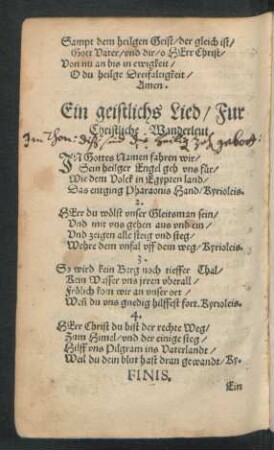 Sampt dem heilgen Geist/ der gleich ist/
Gott Vater/ vnd dir/ o HErr Christ/
Von nu an bis in ewigkeit/
O du heilge Dreifaltigkeit/
Amen.
Ein geistlichs Lied/ Fur
Christliche Wanderleut
Im Thon:
IN Gottes Namen fahren wir/
Sein heilger Engel geh vns für/
Wie dem Volck in Egypten land/
Das entging Pharaonis Hand/ Kyrioleis.
2.
HErr du wölst vnser Gleitsman sein/
Vnd mit vns gehen aus vnd ein/
Vnd zeigen alle steig vnd steg/
Wehre dem vnfal vff dem weg/ Kyrioleis.
3.
So wird kein Berg noch tieffer Thal/
Kein Wasser vns jrren vberall/
Frölich kom wir an vnser ort/
Weñ du vns gnedig hilffest fort. Kyrioleis.
4.
HErr Christ du bist der rechte Weg/
Zum Himel/ vnd der einige steg/
Hilff vns Pilgram ins Vaterlandt/
Weil du dein blut hast dran gewandt/ Ky-
FINIS.
Ein